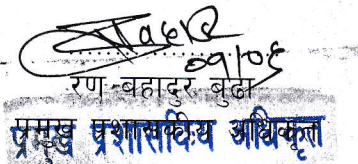 ०९/०६
रण बहादुर बुढा
प्रमुख प्रशासकीय अधिकृत